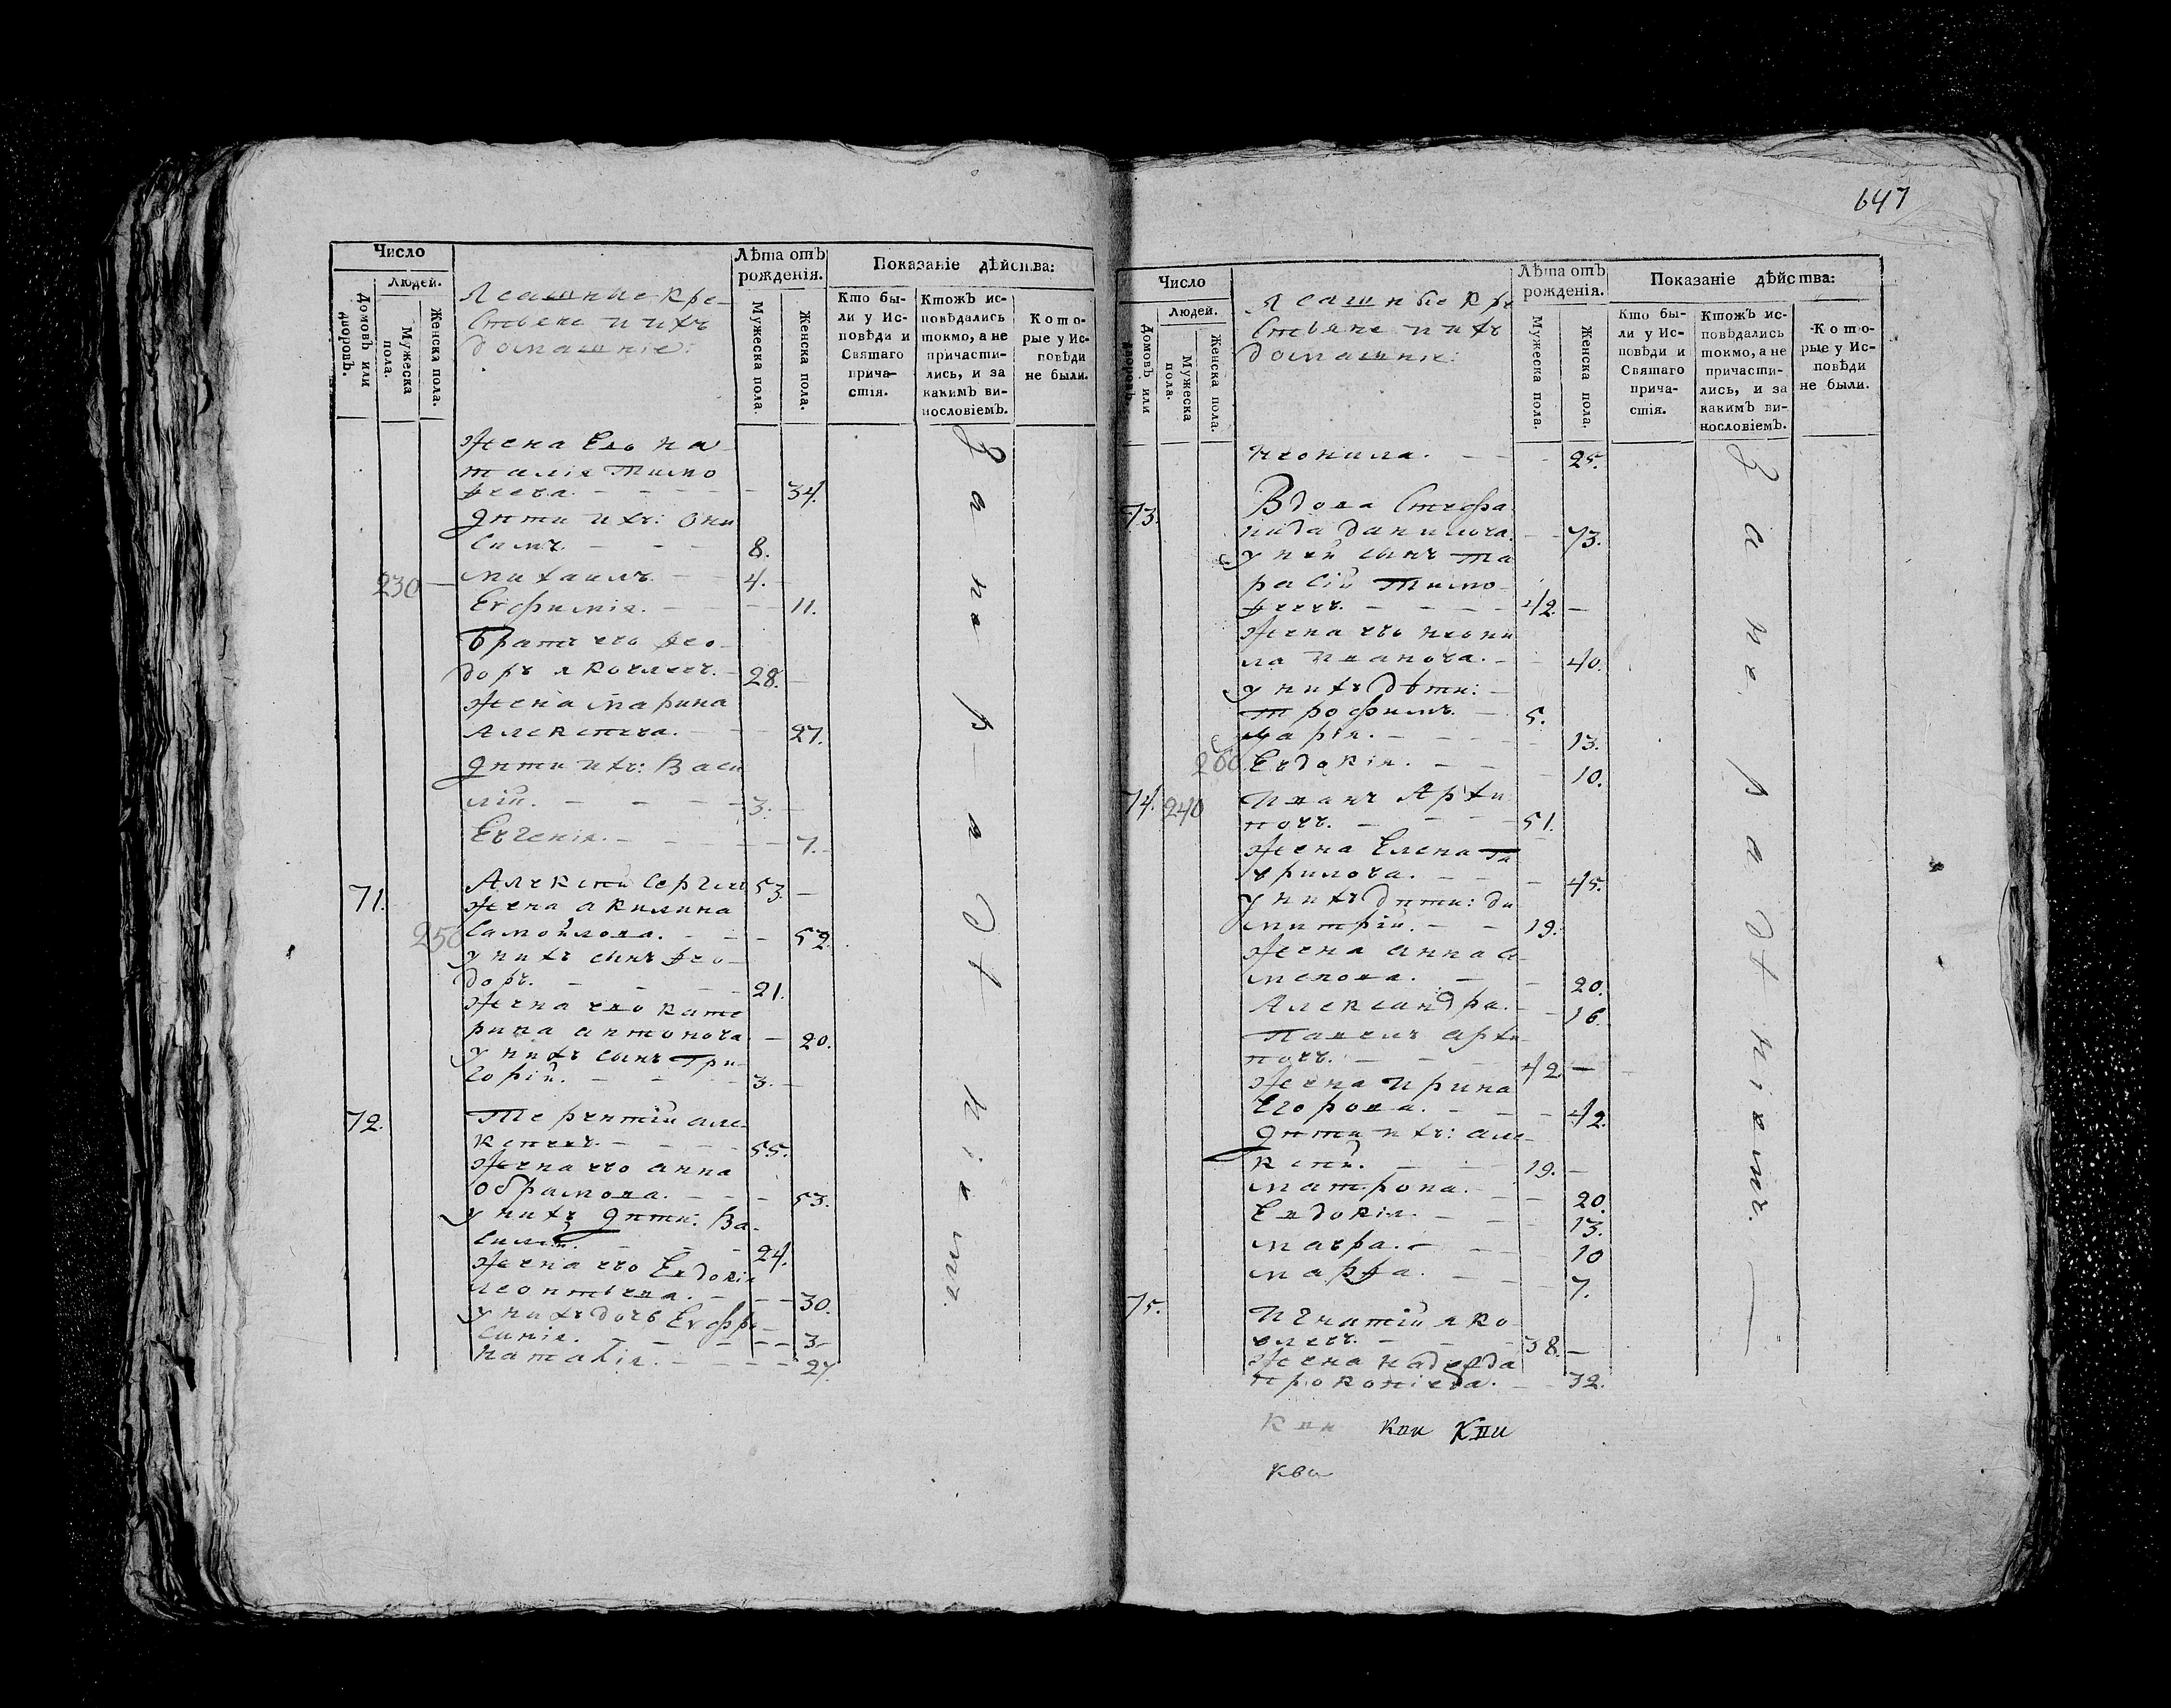 Число
Людей.
Домовъ или дворовъ.
Мужеска пола.
Женска пола.
Ясашные кре-
стьяне и ихъ
домашніе:
Лѣта отъ
рожденія.
Мужеска пола.
Женска пола.
Показаніе дѣйства:
Кто бы-
ли у Ис-
повѣди и
Святаго
прича-
стія.
Ктожъ ис-
повѣдались
токмо, а не
причасти-
лись, и за
какимъ ви-
нословіемъ.
Кото-
рые у Ис-
повѣди
не были.
Жена Его На
талія Тимо
ѳеева. 34.
Дѣти ихъ: Они
симъ. 8.
230 Михаилъ. 4.
Евфимія. 11.
Братъ его Ѳео-
доръ Яковлевъ. 28.
Жена Марина
Алексѣева. 27.
Дѣти ихъ: Васи
лій. 3.
Евгенія. 7.
71. Алексѣй Сергѣевъ 53.
Жена Акилина
250 Самойлова. 52.
у нихъ сынъ Ѳео-
доръ. 21.
Жена его Кате
рина Антонова. 20.
у нихъ сынъ Гри
горій. 3.
72. Терентій Але-
ксѣевъ. 55.
Жена его Анна
Обрамова. 53.
у нихъ дѣти: Ва-
силій. 24.
Жена его Евдокія
Леонтьева. 30.
у нихъ дочь Евфро
синія. 3
Наталія. 27.
За нерадѣніемъ.
647
Число
Людей.
Домовъ или дворовъ.
Мужеска пола.
Женска пола.
Ясашные кре
стьяне и ихъ
домашніе:
Лѣта отъ
рожденія.
Мужеска пола.
Женска пола.
Показаніе дѣйства:
Кто бы-
ли у Ис-
повѣди и
Святаго
прича-
стія.
Ктожъ ис-
повѣдались
токмо, а не
причасти-
лись, и за
какимъ ви-
нословіемъ.
Кото-
рые у Ис-
повѣди
не были.
Неонила. 25.
73. Вдова Стефа
нида Данилова. 73.
у ней сынъ Та
расій Тимо-
ѳеевъ. 42.
Жена его Неони
ла Иванова. 40.
у нихъ дѣти:
Трофимъ. 5.
Марія. 13.
260 Евдокія. 10.
74. 240 Иванъ Архи
повъ. 51.
Жена Елена Га
врилова. 45.
у нихъ дѣти: Ди
митрій. 19.
Жена Анна Се
менова. 20.
Александра. 16.
Павелъ Архи-
повъ. 42.
Жена Ирина
Егорова. 42.
Дѣти ихъ: Але-
ксѣй. 19.
Матрона. 20.
Евдокія. 13.
Мавра. 10
Марѳа. 7.
75. Игнатій Яко
влевъ. 38.
Жена Надежда
Прокопіева. 32.
За нерадѣніемъ.